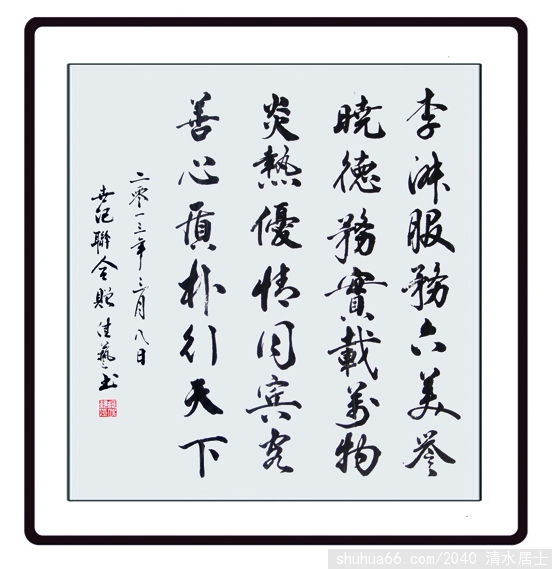 李服務美譽
曉德務實載萬物
炎熱優情賓客
善心質朴行天下
二零一三年三月八日
世纪聯合贈佳藝书
shuhua66.com/2040 清水居士